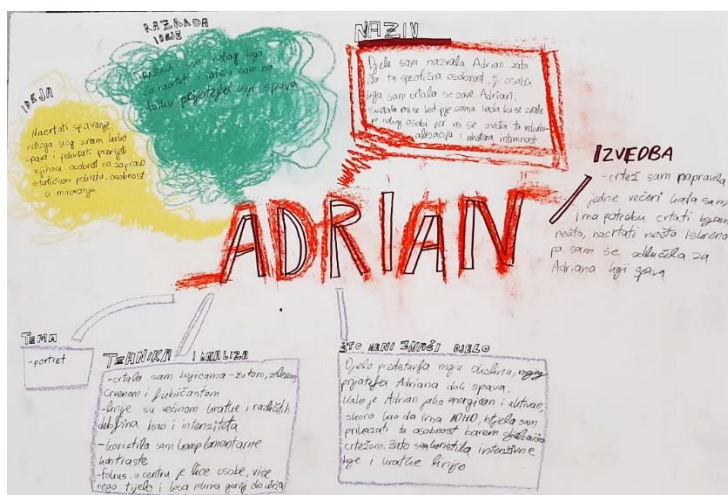 RAZRADA
IDEJE
prijatelja koji spava
IDEJA
Nacrtati spavanje
nekoga koga znam kako
spava i pokušati prenijeti
njihovu osobnost na zapravo
statičnom portretu, osobnost
u mirovanju
NAZIV
Djelo sam nazvala Adrian zato
što ta specifična osobnost, tj. osoba
koju sam crtala se zove Adrian.
intimnost
ADRIAN
IZVEDBA
-crtež sam napravila
jedne večeri kada sam
ima potrebu crtati
nešto, nacrtati nešto iskreno
pa sam se odlučila za
Adriana koji spava
TEMA
-portret
TEHNIKA I ANALIZA
-crtala sam bojicama - žutom, zelenom,
crvenom i ljubičastom
-linije su većinom kratke i različitih
debljina kao i intenziteta
-koristila sam komplementarne
kontraste
-fokus, u centru je lice osobe, više
nego tijelo i kosa
ŠTO MENI ZNAČI DJELO
Djelo predstavlja moju mog
prijatelja Adriana dok spava.
Kako je Adrian jako energičan i aktivan,
skoro kao da ima ADHD, htjela sam
prikazati tu osobnost barem
crtežom. Zato sam koristila intenzivne
boje i kratke linije